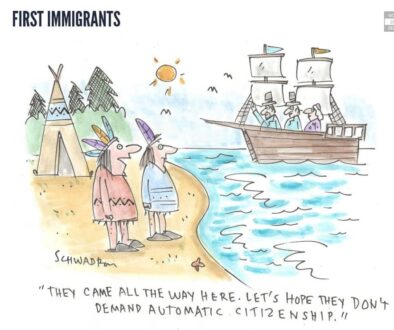 FIRST IMMIGRANTS
SCHWADRON
"THEY CAME ALL THE WAY HERE. LET'S HOPE THEY DON'T
DEMAND AUTOMATIC CITIZENSHIP."